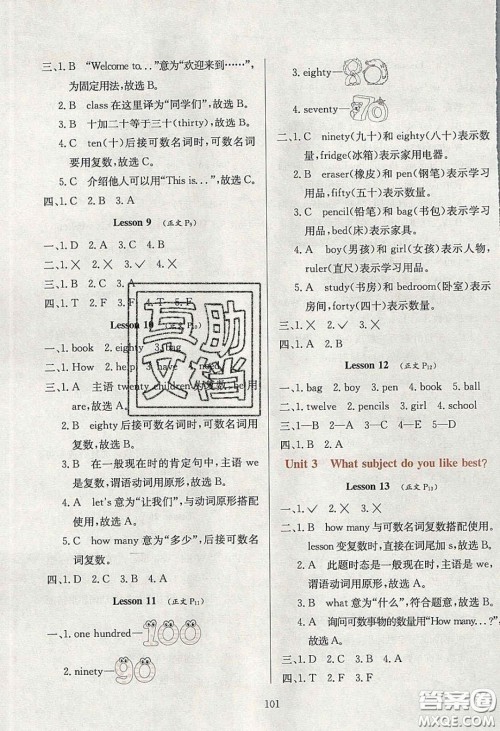 三、1. B “Welcome to...”意为“欢迎来到……”,
为固定用法,故选 B。
2. B class 在这里译为“同学们”,故选 B。
3. B 十加二十等于三十(thirty),故选 B。
4. C ten(十)后接可数名词时,可数名词
要用复数,故选 C。
5. C 介绍他人可以用“This is...”,故选 C。
四、1. D 2. C 3. B 4. A
Lesson 9 (正文 P9)
一、1. D 2. A 3. C 4. B
三、1. × 2. × 3. ✓ 4. ×
四、1. T 2. F 3. F 4. T 5. F
Lesson 10 (正文 P10)
一、1. book 2. eighty 3. bag
二、1. How 2. help 3. have 4. need
三、1. A 主语 twenty children 为复数, be 用
are,故选 A。
2. B eighty 后接可数名词时,可数名词用
复数,故选 B。
3. B 在一般现在时的肯定句中,主语 we
是复数,谓语动词用原形,故选 B。
4. A let's 意为“让我们”,与动词原形搭配
使用,故选 A。
5. C how many 意为“多少”,后接可数名
词复数。
四、1. D 2. C 3. A 4. B
Lesson 11 (正文 P11)
一、1. one hundred—100
2. ninety—90
3. eighty—80
4. seventy—70
二、1. C ninety(九十)和 eighty(八十)表示数
量,fridge(冰箱)表示家用电器。
2. B eraser(橡皮)和 pen(钢笔)表示学习
用品,fifty(五十)表示数量。
3. C pencil(铅笔)和 bag(书包)表示学习用
品,bed(床)表示家具。
4. A boy(男孩)和 girl(女孩)表示人物,
ruler(直尺)表示学习用品。
5. A study(书房)和 bedroom(卧室)表示
房间,forty(四十)表示数量。
三、1. × 2. ✓ 3. × 4. ✓
四、1. B 2. A 3. A
Lesson 12 (正文 P12)
一、1. bag 2. boy 3. pen 4. ball
二、1. twelve 2. pencils 3. girl 4. school
三、1—C 2—A 3—B 4—E 5—D
四、1. B 2. A 3. C
Unit 3 What subject do you like best?
Lesson 13 (正文 P13)
一、1. ✓ 2. × 3. ✓ 4. ×
二、1. B how many 与可数名词复数搭配使用。
lesson 变复数时,直接在词尾加 s,故选 B。
2. A 此题时态是一般现在时,主语是 we,
谓语动词用原形,故选 A。
3. B what 意为“什么”,符合题意,故选 B。
4. A 询问可数事物的数量用“How many...?”,
故选 A。
三、1. D 2. C 3. B 4. A
四、1. D 2. C 3. F 4. A 5. B
101
互助
文档
答案圈
MXQE.COM